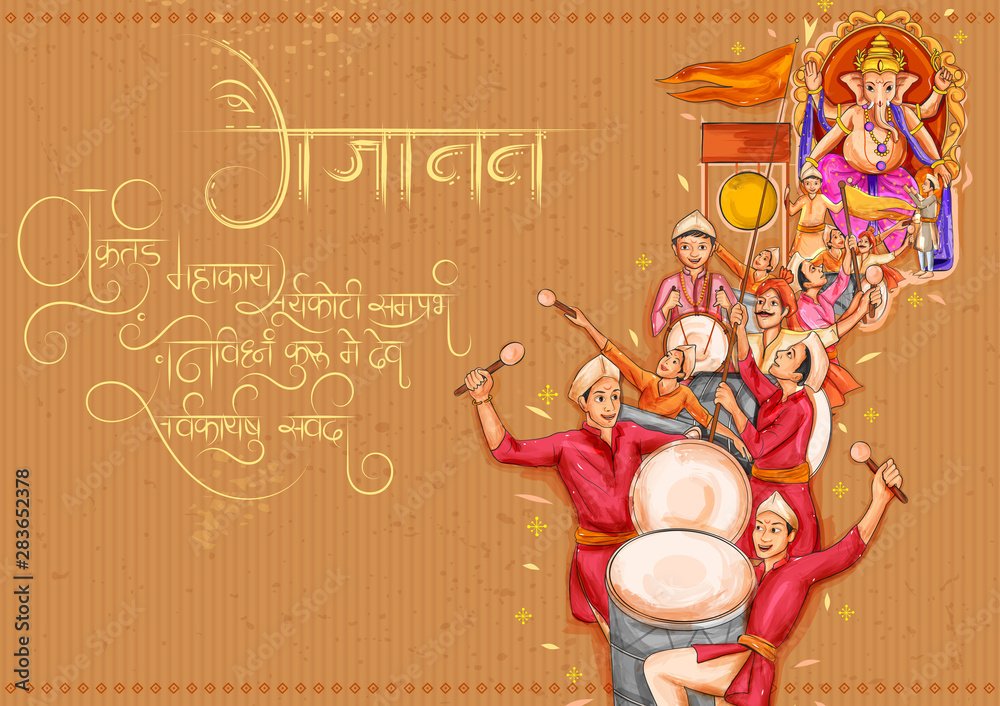 गजानन
वक्रतुंड महाकाय सूर्यकोटी समप्रभं
निर्विघ्नं कुरु मे देव
सर्वकार्येषु सर्वदा
Adobe Stock | #283652378